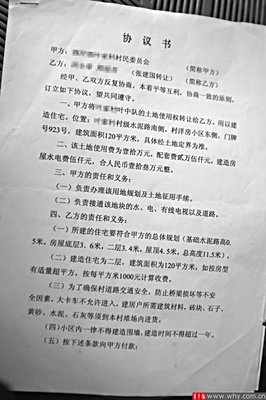 协 议 书
甲方：村民委员会 （简称甲方）
乙方：（张建国转让） （简称乙方）
经甲、乙双方反复协商，本着平等互利，协商一致的原则，
订立如下协议，望共同遵守。
一、甲方将叶中队的土地使用权转让给乙方，用以建
造住宅。位置：村级水泥路南侧，村洋房小区东侧，门牌
号923号，建筑面积120平方米，具体经土地定界为准。
二、该土地使用费为壹拾万元，配套费贰万伍仟元，建造房
屋水电费伍仟元，合人民币壹拾叁万元整。
三、甲方的责任和义务：
（一）负责办理该用地规划及土地征用手续。
（二）负责接通该地块的水、电、有线电视以及道路。
四、乙方的责任和义务：
（一）所建的住宅要符合甲方的总体规划（基础水泥路高0.
5米，房屋底层3.6米，二层3.4米，屋顶4.5米，总高度11.5米）。
（二）建造住宅为二层，建筑面积为120平方米，如按房型
有适量超平方，按每平方米1000元计算收费。
（三）为了确保村道路交通安全，防止桥梁损坏等不安
全因素，大卡车不允许进入，建居户所需建筑材料，砖块、石子、
黄砂、水泥、石灰等须到本村堆场内进货。
（四）小区内一律不得建造围墙，建造时间不得超过一年。
（五）按下述条款向甲方付款：
www.why.com.cn